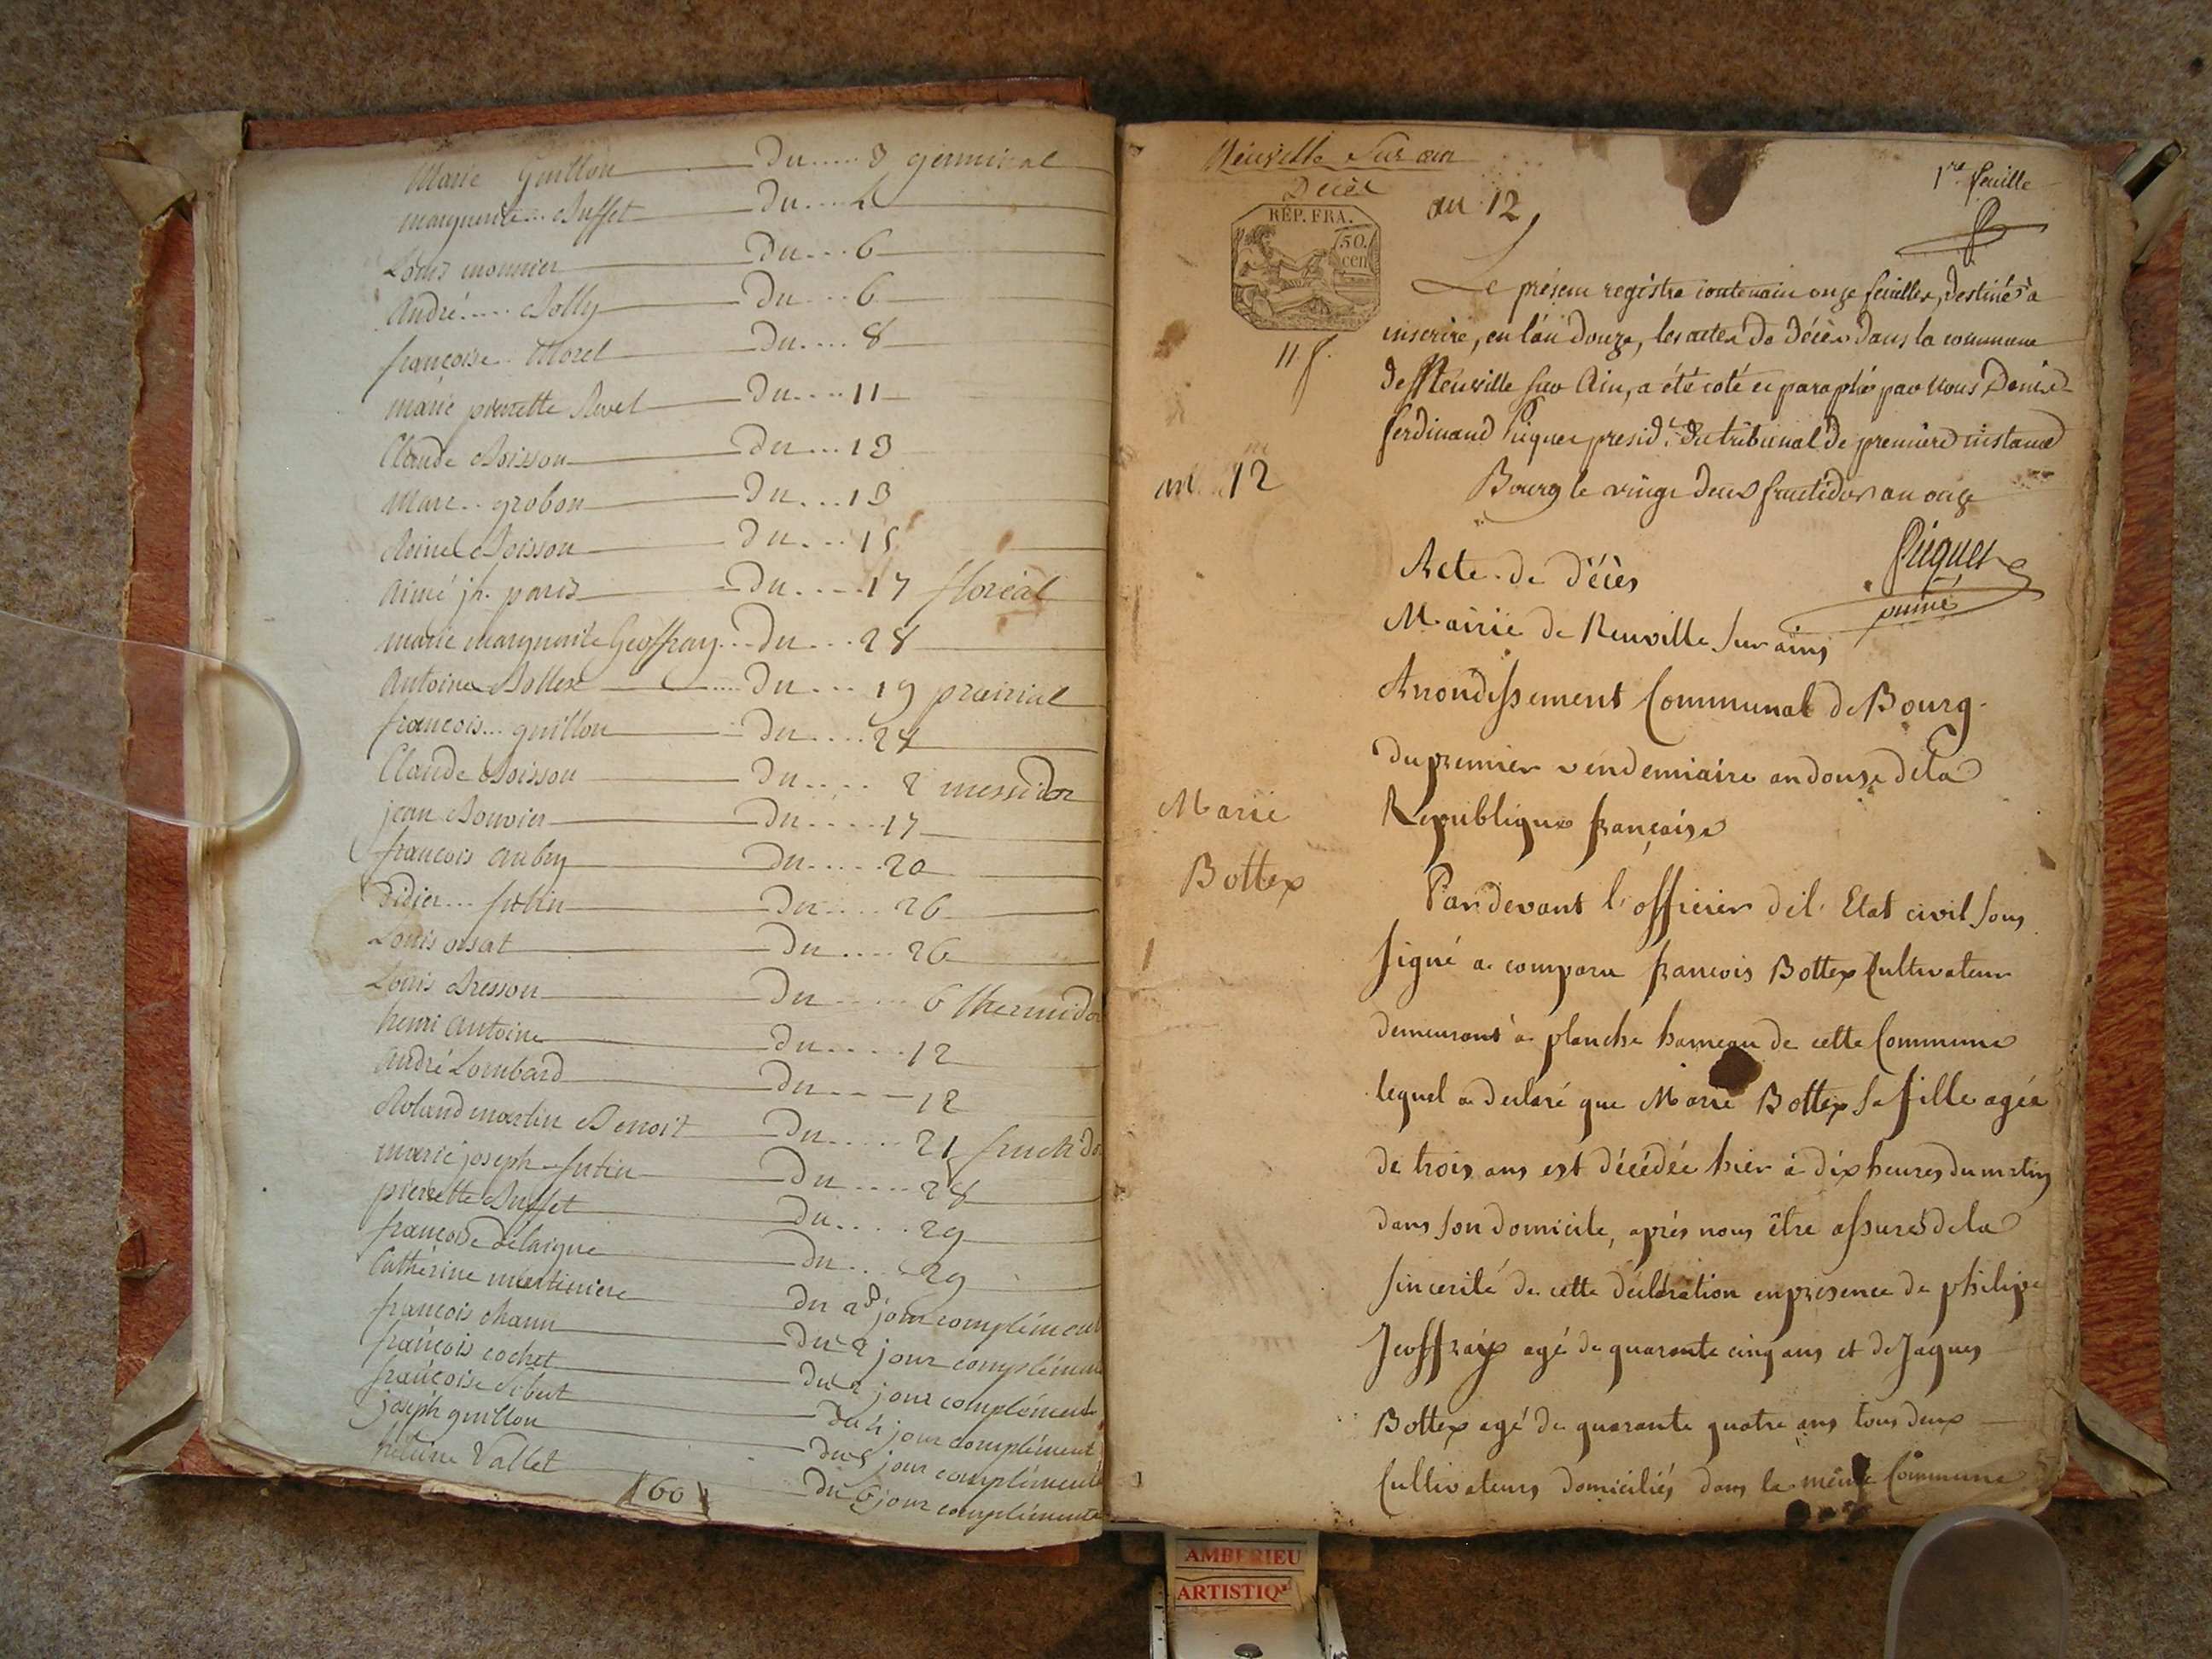 Marie Guillon Du..... 3 germinal
marguerite... Buffet Du....
Louis monnier Du... 6
André..... Du... 6
françoise.. Morel Du.... 8
marie pierrette Revel Du.... 11
Claude Boisson Du... 13
Marc.. grobon Du... 13
Boisson Du... 15
Aimé jh. paris Du....17 floréal
marie marguerite Geoffray.. Du... 28
Antoine ..... Du... 19 prairial
francois... guillon Du.... 24
Claude Boisson Du..... 2 messidor
jean Bouvier Du.....17
francois aubry Du.....20
Didier... Du.... 26
Louis Du.... 26
Louis Bresson Du..... 6 thermidor
henri Antoine Du.....12
André Lombard Du....12
Roland martin Benoit Du..... 21 fructidor
marie joseph Du.....28
pierrette Buffet Du.... 29
francoise delaigue Du... 29
Catherine Du jour complément
francois Du 2 jour complément
francois cochet Du 2 jour complément
francoise Sibert du 4 jour complément
joseph guillon du 5 jour complément
Vallet Du 6 jour complément
60
Neuville sur ain
Décès
an 12
1re feuille
RÉP. FRA.
50.
cen
11 f.
Le présent registre contenant onze feuilles, destinés à
inscrire, en l'an douze, les actes de décès dans la commune
de Neuville sur Ain, a été coté et paraphé par nous Denis
ferdinand Piquet presidt. du tribunal de premiere instance
Bourg le vingt deux fructidor an onze
an 12
Piquet
Acte de décès
Mairie de Neuville sur ains
Arrondissement Communal de Bourg
du premier vendemiaire an douse de la
Marie
Republique française
Bottex
Pardevant l'officier de l'Etat civil sous
signé a comparu francois Bottex Cultivateur
demeurant à planche hameau de cette Commune
lequel a declaré que Marie Bottex sa fille agée
de trois ans est décédée hier à dix heures du matin
dans son domicile, après nous être assurés de la
sincerité de cette déclaration en presence de philipe
Jeoffray agé de quarante cinq ans et de Jaques
Bottex agé de quarante quatre ans tous deux
Cultivateurs domiciliés dans la même Commune
AMBERIEU
ARTISTIQ